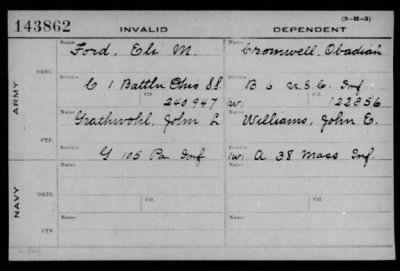 (3-H-5)
143862 INVALID DEPENDENT
ARMY
NAVY
ORIG.
CTF.
ORIG.
CTF.
Name Ford, Eli M. Name Cromwell, Obadiah
Service C 1 Battln Ohio S.S. Service B 6 U.S.C. Inf
Ctf. 240947 Ctf. (W) 122356
Name Grathwohl, John L Name Williams, John E.
Service G 105 Pa Inf Service (W) A 38 Mass Inf.
Name Name
Service Ctf. Service Ctf.
Name Name
Service Service